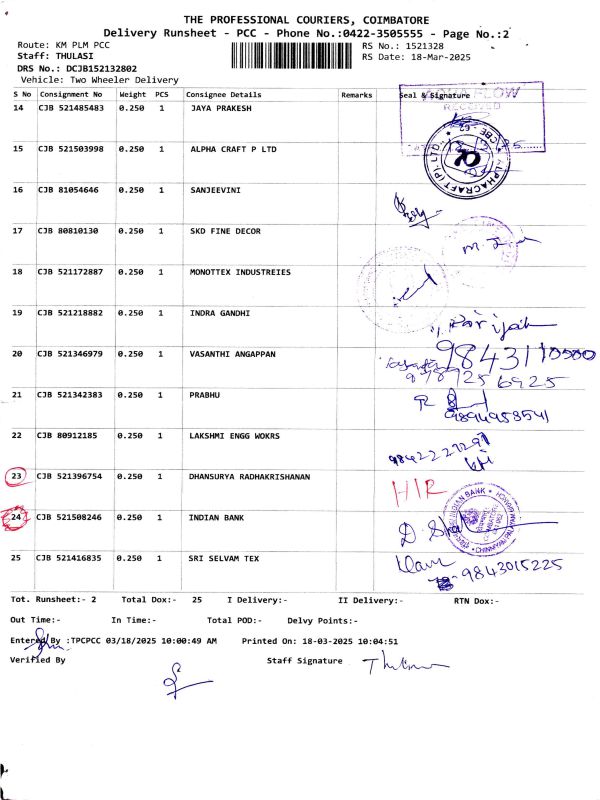 THE PROFESSIONAL COURIERS, COIMBATORE
Delivery Runsheet - PCC - Phone No.:0422-3505555 - Page No.:2
Route: KM PLM PCC RS No.: 1521328
Staff: THULASI RS Date: 18-Mar-2025
DRS No.: DCJB152132802
Vehicle: Two Wheeler Delivery
S No Consignment No Weight PCS Consignee Details Remarks Seal & Signature
14 CJB 521485483 0.250 1 JAYA PRAKESH RECEIVED
15 CJB 521503998 0.250 1 ALPHA CRAFT P LTD ALPHACRAFT (P) LTD.
16 CJB 81054646 0.250 1 SANJEEVINI
17 CJB 80810130 0.250 1 SKD FINE DECOR
18 CJB 521172887 0.250 1 MONOTTEX INDUSTREIES
19 CJB 521218882 0.250 1 INDRA GANDHI
20 CJB 521346979 0.250 1 VASANTHI ANGAPPAN
21 CJB 521342383 0.250 1 PRABHU 9894958541
22 CJB 80912185 0.250 1 LAKSHMI ENGG WOKRS
23 CJB 521396754 0.250 1 DHANSURYA RADHAKRISHANAN HIR
24 CJB 521508246 0.250 1 INDIAN BANK INDIAN BANK
25 CJB 521416835 0.250 1 SRI SELVAM TEX 9843015225
Tot. Runsheet:- 2 Total Dox:- 25 I Delivery:- II Delivery:- RTN Dox:-
Out Time:- In Time:- Total POD:- Delvy Points:-
Entered By :TPCPCC 03/18/2025 10:00:49 AM Printed On: 18-03-2025 10:04:51
Verified By Staff Signature